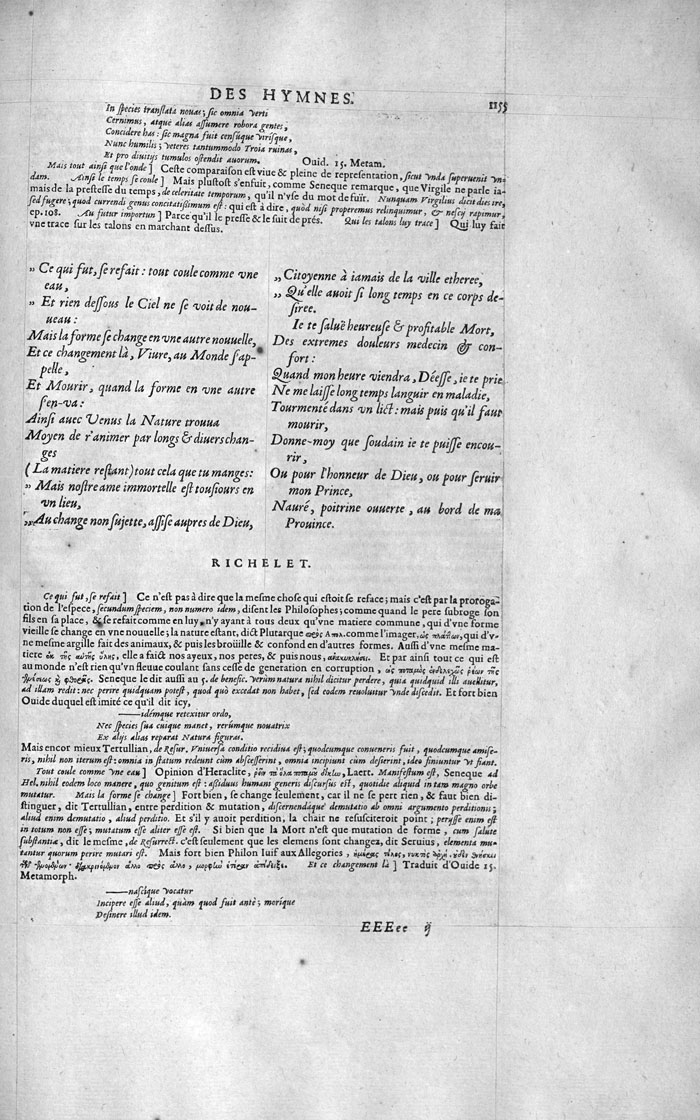 DES HYMNES. 1155
In species translata nouas; sic omnia verti
Cernimus, atque alias assumere robora gentes,
Concidere has: sic magna fuit censúque virisque,
Nunc humilis; veteres tantummodo Troia ruinas,
Et pro diuitiis tumulos ostendit auorum. Ouid. 15. Metam.
Mais tout ainsi que l'onde] Ceste comparaison est viue & pleine de representation, sicut vnda superuenit vn-
dam. Ainsi le temps se coule] Mais plustost s'enfuit, comme Seneque remarque, que Virgile ne parle ia-
mais de la prestesse du temps, de celeritate temporum, qu'il n'vse du mot de fuit. Nunquam Virgilius dicit dies ire,
sed fugere; quod currendi genus concitatissimum est: qui est à dire, quod nisi properemus relinquimur, & nescij rapimur,
ep. 108. Au futur importun] Parce qu'il le presse & le suit de prés. Qui les talons luy trace] Qui luy fait
vne trace sur les talons en marchant dessus.
„ Ce qui fut, se refait: tout coule comme vne
eau,
„ Et rien dessous le Ciel ne se voit de nou-
ueau:
Mais la forme se change en vne autre nouuelle,
Et ce changement là, Viure, au Monde s'ap-
pelle,
Et Mourir, quand la forme en vne autre
s'en-va:
Ainsi auec Venus la Nature trouua
Moyen de r'animer par longs & diuers chan-
ges
(La matiere restant) tout cela que tu manges:
„ Mais nostre ame immortelle est tousiours en
vn lieu,
„ Au change non sujette, assise aupres de Dieu,
„ Citoyenne à iamais de la ville etheree,
„ Qu'elle auoit si long temps en ce corps de-
siree.
Ie te saluë heureuse & profitable Mort,
Des extremes douleurs medecin & con-
fort:
Quand mon heure viendra, Déesse, ie te prie
Ne me laisse long temps languir en maladie,
Tourmenté dans vn lict: mais puis qu'il faut
mourir,
Donne-moy que soudain ie te puisse encou-
rir,
Ou pour l'honneur de Dieu, ou pour seruir
mon Prince,
Nauré, poitrine ouuerte, au bord de ma
Prouince.
RICHELET.
Ce qui fut, se refait] Ce n'est pas à dire que la mesme chose qui estoit se reface; mais c'est par la proroga-
tion de l'espece, secundum speciem, non numero idem, disent les Philosophes; comme quand le pere subroge son
fils en sa place, & se refait comme en luy, n'y ayant à tous deux qu'vne matiere commune, qui d'vne forme
vieille se change en vne nouuelle; la nature estant, dict Plutarque comme l'imager, qui d'v-
ne mesme argille fait des animaux, & puis les broüille & confond en d'autres formes. Aussi d'vne mesme ma-
tiere elle a faict nos ayeux, nos peres, & puis nous, Et par ainsi tout ce qui est
au monde n'est rien qu'vn fleuue coulant sans cesse de generation en corruption,
Seneque le dit aussi au 5. de benefic. verùm natura nihil dicitur perdere, quia quidquid illi auellitur,
ad illam redit: nec perire quidquam potest, quod quò excedat non habet, sed eodem reuoluitur vnde discedit. Et fort bien
Ouide duquel est imité ce qu'il dit icy,
——idémque retexitur ordo,
Nec species sua cuique manet, rerúmque nouatrix
Ex alijs alias reparat Natura figuras.
Mais encor mieux Tertullian, de Resur. Vniuersa conditio recidiua est; quodcumque conueneris fuit, quodcumque amise-
ris, nihil non iterum est: omnia in statum redeunt cùm abscesserint, omnia incipiunt cùm desierint, ideo finiuntur vt fiant.
Tout coule comme vne eau] Opinion d'Heraclite, Laert. Manifestum est, Seneque ad
Hel. nihil eodem loco manere, quo genitum est: assiduus humani generis discursus est, quotidie aliquid in tam magno orbe
mutatur. Mais la forme se change] Fort bien, se change seulement, car il ne se pert rien, & faut bien di-
stinguer, dit Tertullian, entre perdition & mutation, discernendáque demutatio ab omni argumento perditionis;
aliud enim demutatio, aliud perditio. Et s'il y auoit perdition, la chair ne resusciteroit point; perijsse enim est
in totum non esse; mutatum esse aliter esse est. Si bien que la Mort n'est que mutation de forme, cum salute
substantiæ, dit le mesme, de Resurrect. c'est seulement que les elemens sont changez, dit Seruius, elementa mu-
tantur quorum perire mutari est. Mais fort bien Philon Iuif aux Allegories,
Et ce changement là] Traduit d'Ouide 15.
Metamorph.
——nascique vocatur
Incipere esse aliud, quàm quod fuit antè; morique
Desinere illud idem.
EEEee ij